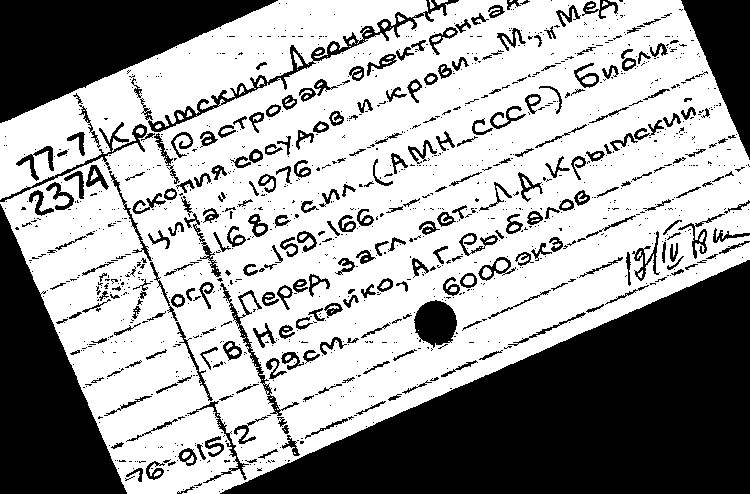 77-7
2374
Крымский, Леонард Д
Растровая электронная
скопия сосудов и крови. М., „Мед
цина", 1976.
168 с. с ил. (АМН СССР) Библи-
огр.: с. 159-166
Перед загл. авт.: Л.Д. Крымский,
Г.В. Нестайко, А.Г. Рыбалов
29 см. 6000 экз
76-91512